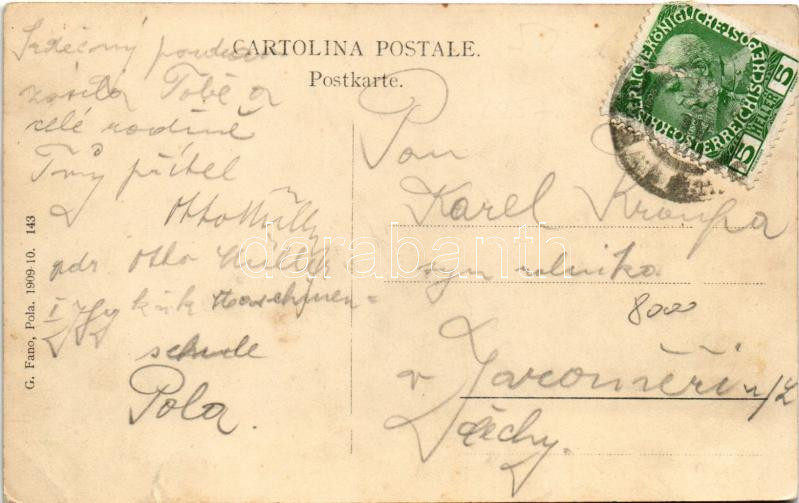 CARTOLINA POSTALE.
Postkarte.
Srdečný pozdrav
zasílá Tobě a
celé rodině
Tvůj přítel
Otto Müller
adr Otto Müller
I Jhg k.u.k Maschinen=
schule
Pola.
G. Fano, Pola. 1909-10. 143
Pan
Karel Kroupa
syn rolníka
8000
v Jaroměři n/L
Čechy.
KAISERLICHE KÖNIGLICHE ÖSTERREICHISCHE POST
5 HELLER 5
darabanth